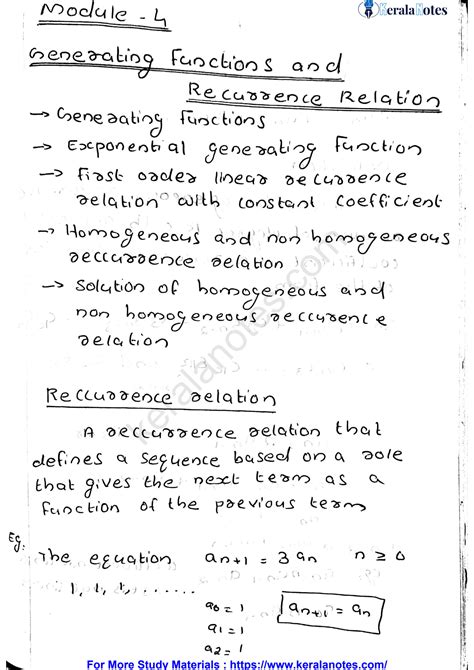 Module - 4
KeralaNotes
Generating Functions and
Recurrence Relation
→ Generating Functions
→ Exponential generating Function
→ First order linear recurrence
relation with constant coefficient
→ Homogeneous and non homogeneous
reccurrence relation
→ Solution of homogeneous and
non homogeneous reccurrence
relation
Reccurrence relation
A reccurrence relation that
defines a sequence based on a role
that gives the next term as a
function of the previous term
Eg: The equation an+1 = 3an n ≥ 0
1, 1, 1, ......
a0 = 1
an+1 = an
a1 = 1
a2 = 1
keralanotes.com
For More Study Materials : https://www.keralanotes.com/